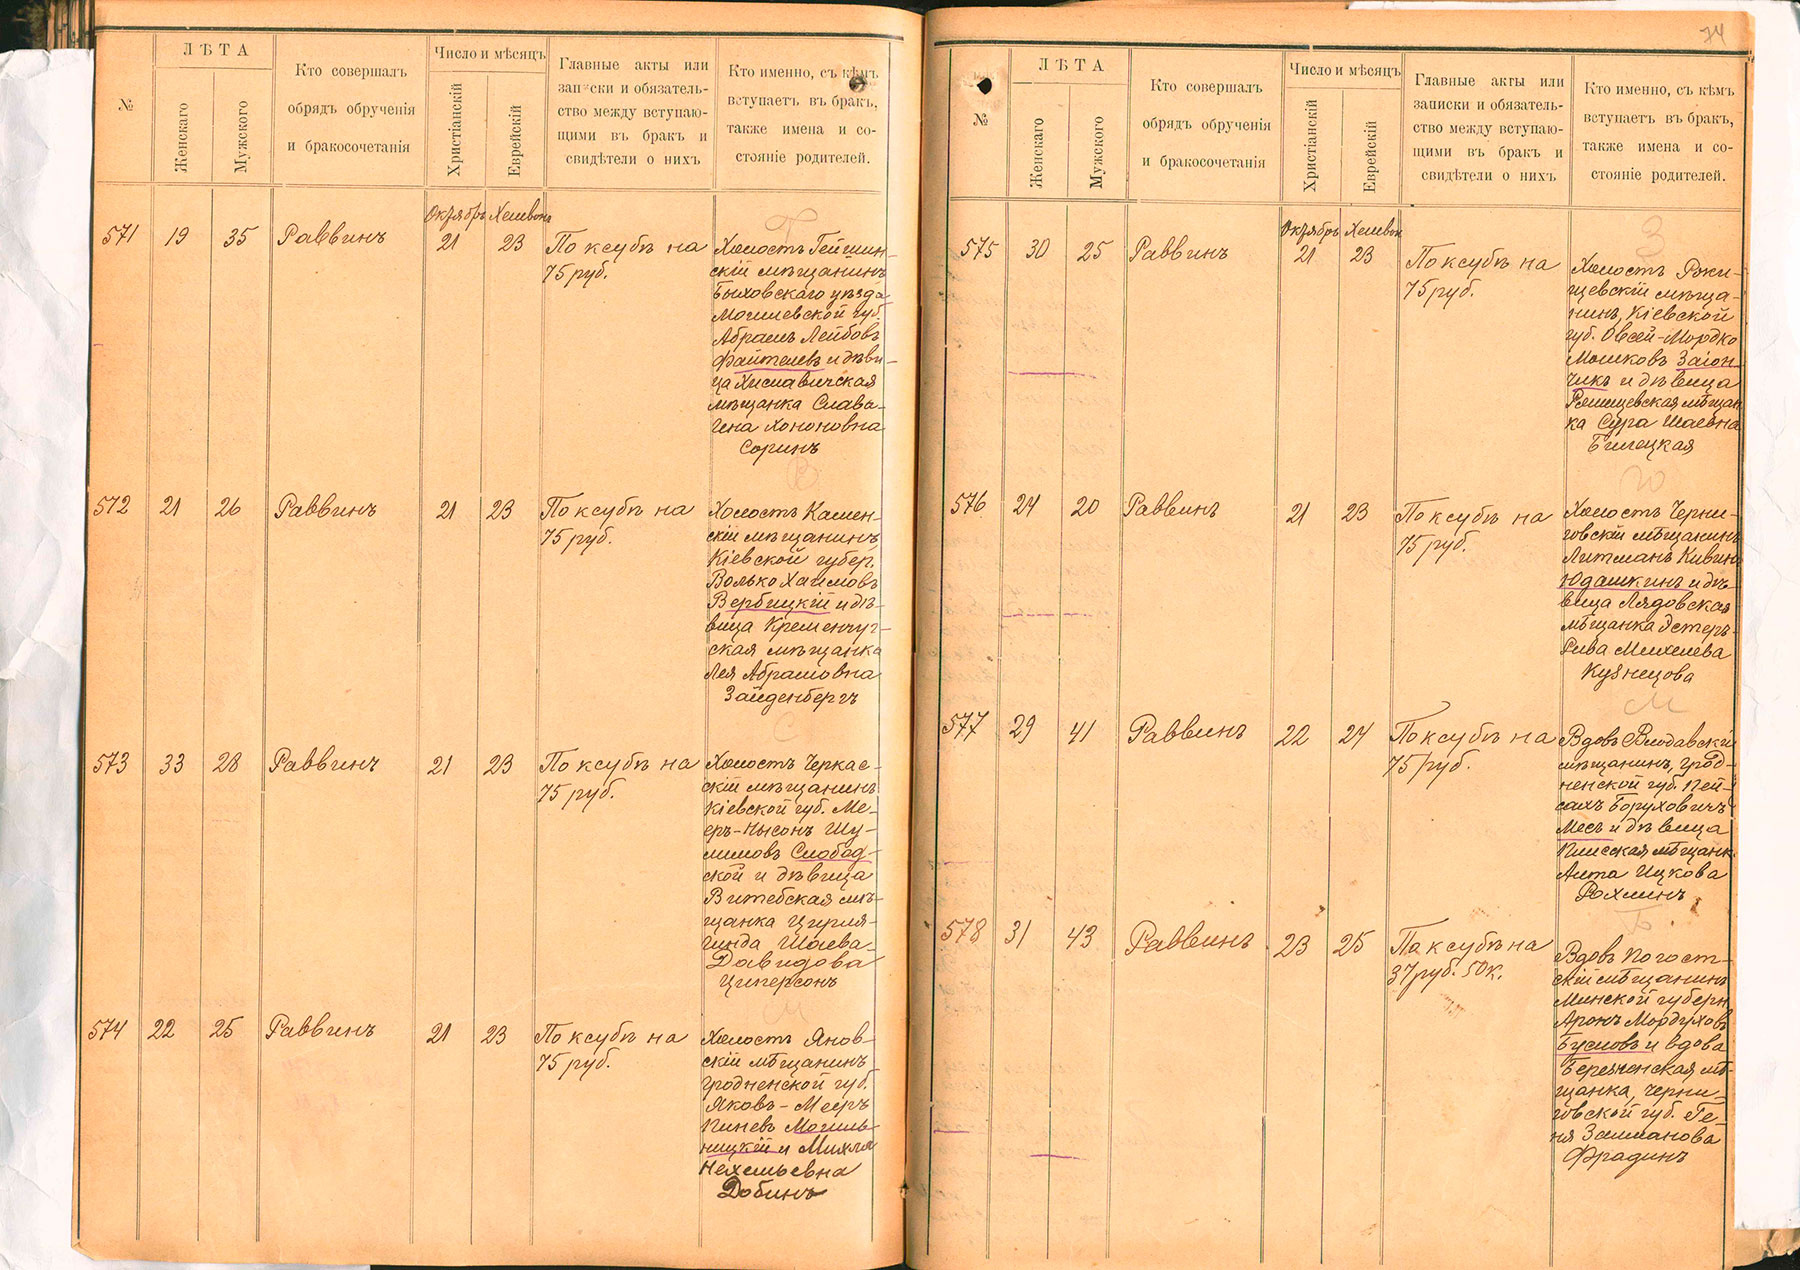 №
ЛѢТА
Женскаго
Мужского
Кто совершалъ
обрядъ обрученія
и бракосочетанія
Число и мѣсяцъ
Христіанскій
Еврейскій
Главные акты или
записки и обязатель-
ство между вступаю-
щими въ бракъ и
свидѣтели о нихъ
Кто именно, съ кѣмъ
вступаетъ въ бракъ,
также имена и со-
стояніе родителей.
Октябрь Хешвонъ
571 19 35 Раввинъ 21 23
По ксубѣ на
75 руб.
Холостъ
скій мѣщанинъ
Быховскаго уѣзда
Могилевской губ.
Абрамъ Лейбовъ
Файтелевъ и дѣви-
ца Хиславичская
мѣщанка Слава-
Гена Хононовна
Соринъ
572 21 26 Раввинъ 21 23
По ксубѣ на
75 руб.
Холостъ Камен-
скій мѣщанинъ
Кіевской губер.
Волько Хаимовъ
Вербицкій и дѣ-
вица Кременчуг-
ская мѣщанка
Лея Абрамовна
Зайденбергъ
573 33 28 Раввинъ 21 23
По ксубѣ на
75 руб.
Холостъ Черкас-
скій мѣщанинъ
Кіевской губ. Ме-
еръ-Нысонъ Шу-
лимовъ Слобод-
ской и дѣвица
Витебская мѣ-
щанка Цирля-
Гинда Шаева-
Давидова
Циперсонъ
574 22 25 Раввинъ 21 23
По ксубѣ на
75 руб.
Холостъ Янов-
скій мѣщанинъ
Гродненской губ.
Яковъ-Мееръ
Пиневъ Могиль-
ницкій и Михля
Нехемьевна
Добинъ
74
№
ЛѢТА
Женскаго
Мужского
Кто совершалъ
обрядъ обрученія
и бракосочетанія
Число и мѣсяцъ
Христіанскій
Еврейскій
Главные акты или
записки и обязатель-
ство между вступаю-
щими въ бракъ и
свидѣтели о нихъ
Кто именно, съ кѣмъ
вступаетъ въ бракъ,
также имена и со-
стояніе родителей.
Октябрь Хешвон
З
575 30 25 Раввинъ 21 23
По ксубѣ на
75 руб.
Холостъ
щевскій мѣща-
нинъ, Кіевской
губ. Овсей-Мордко
Мошковъ Заіон-
чикъ и дѣвица
мѣщан
ка Сура Шаевна
Билецкая
Ю
576 24 20 Раввинъ 21 23
По ксубѣ на
75 руб.
Холостъ Черни-
говскій мѣщанинъ
Литманъ Кивинъ
Юдашкинъ и дѣ-
вица Лядовская
мѣщанка Эстеръ-
Рива Михелева
Кузнецова
М
577 29 41 Раввинъ 22 24
По ксубѣ на
75 руб.
Вдовъ Влодавскій
мѣщанинъ, Грод-
ненской губ. Пей-
сахъ Боруховичъ
Месъ и дѣвица
Пинская мѣщанк.
Алта Ицкова
Рохлинъ
Б
578 31 43 Раввинъ 23 25
По ксубѣ на
37 руб. 50 к.
Вдовъ Погост-
скій мѣщанинъ
Минской губерн.
Аронъ Мордуховъ
Бусловъ и вдова
Березненская мѣ-
щанка, Черни-
говской губ. Ге-
ня Залманова
Фрадинъ